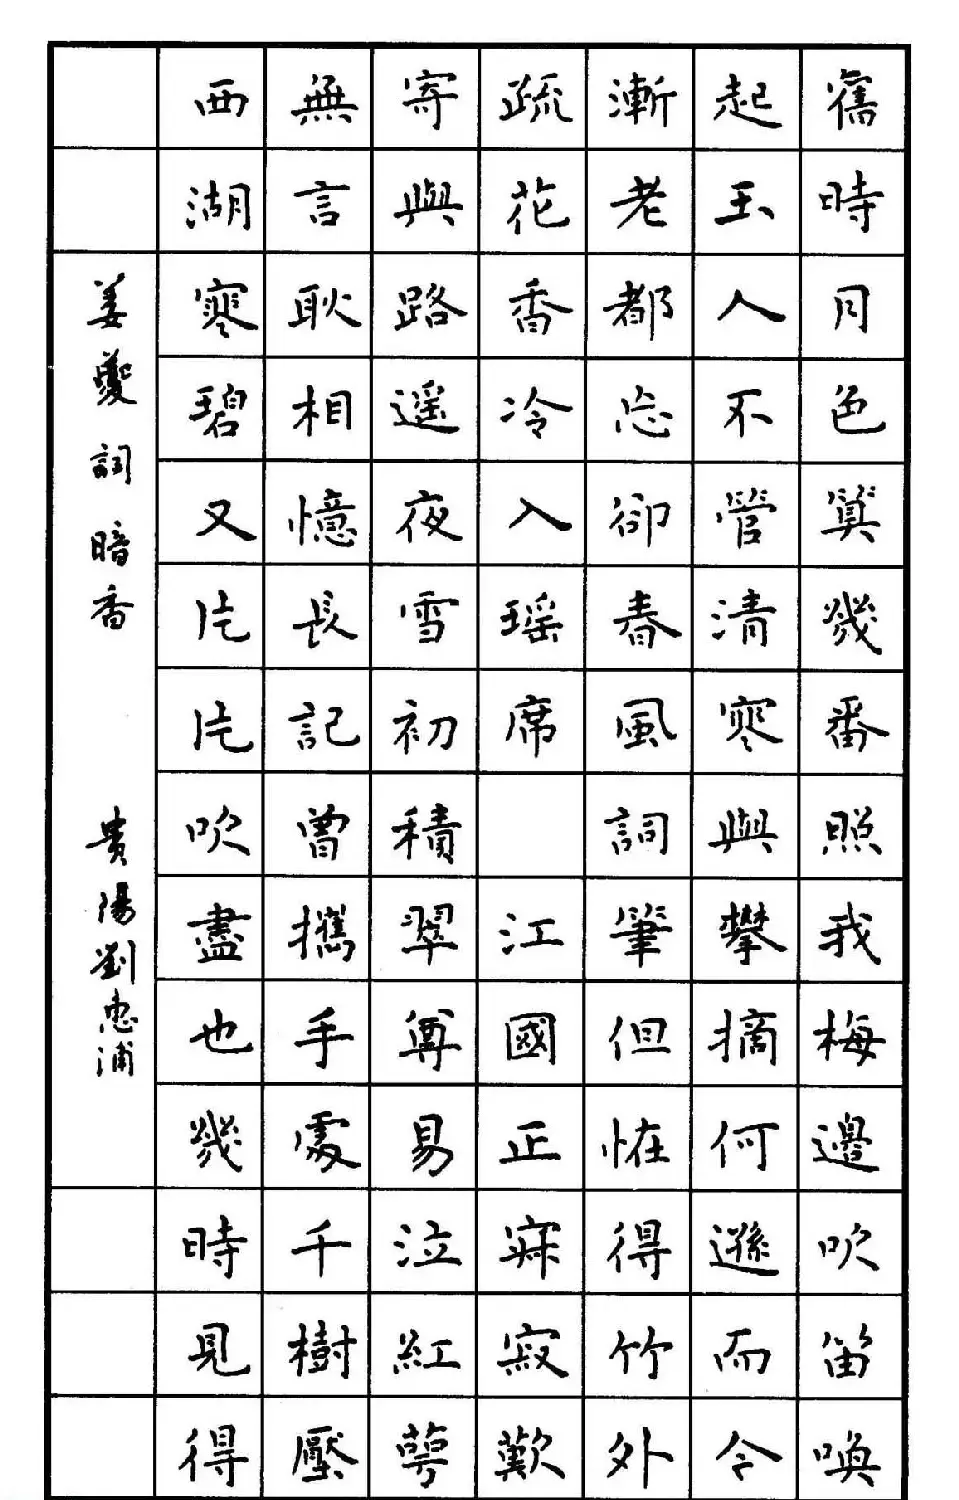 舊時月色算幾番照我梅邊吹笛喚
起玉人不管清寒與攀摘何遜而今
漸老都忘卻春風詞筆但恠得竹外
疏花香冷入瑤席 江國正寂寂歎
寄與路遥夜雪初積翠尊易泣紅萼
無言耿相憶長記曾攜手處千樹壓
西湖寒碧又片片吹盡也幾時見得
姜夔詞暗香 貴陽劉惠浦